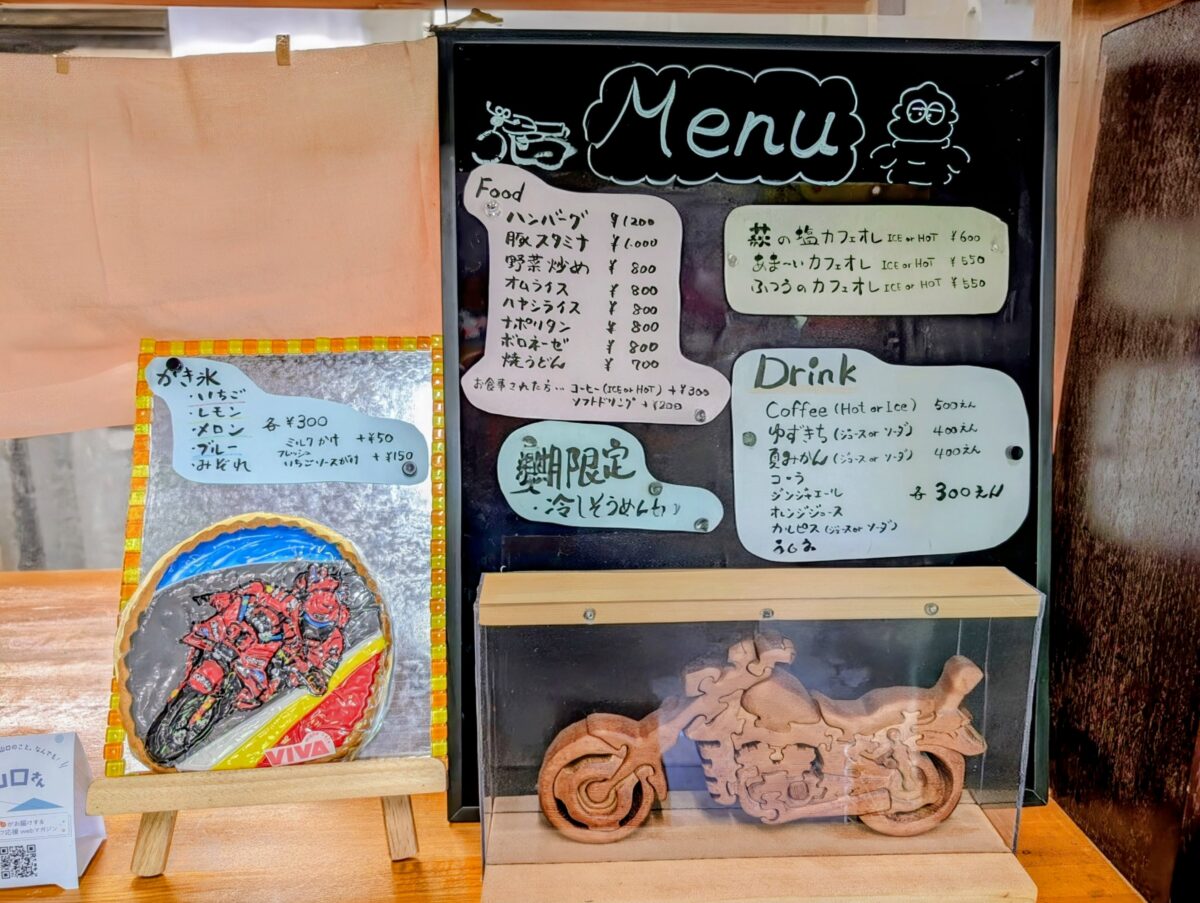 Menu
Food
ハンバーグ ¥1200
豚スタミナ ¥1,000
野菜炒め ¥800
オムライス ¥800
ハヤシライス ¥800
ナポリタン ¥800
ボロネーゼ ¥800
焼うどん ¥700
お食事された方… コーヒー(ICE or HOT) +¥300
ソフトドリンク +¥200
期限定
・冷しそうめん
萩の塩カフェオレ ICE or HOT ¥600
あま〜いカフェオレ ICE or HOT ¥550
ふつうのカフェオレ ICE or HOT ¥550
Drink
Coffee (Hot or Ice) 500えん
ゆずきち (ジュース or ソーダ) 400えん
夏みかん (ジュース or ソーダ) 400えん
コーラ
ジンジャエール 各300えん
オレンジジュース
カルピス (ジュース or ソーダ)
かき氷
・いちご
・レモン
・メロン 各¥300
・ブルー ミルクかけ +¥50
・みぞれ フレッシュいちごソースがけ +¥150
VIVA
山口のこと、なんでも!!
山口さん
がお届けする
応援webマガジン